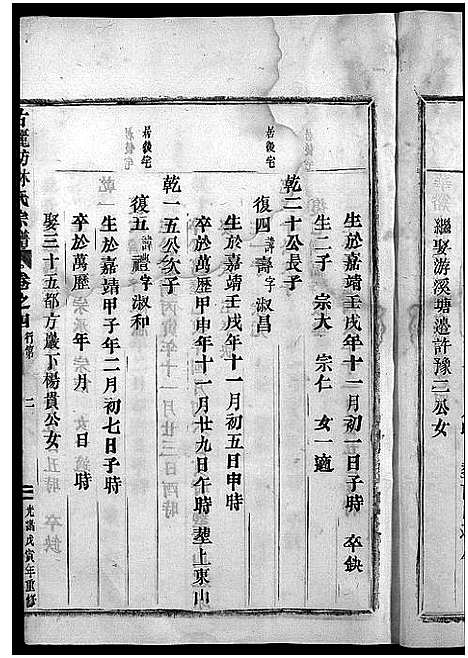 繼娶游溪塘邊許豫二公女
生於嘉靖壬戌年十一月初一日子時 卒缺
生二子 宗大 宗仁 女一適
乾二十公長子
居後宅 復四 諱壽字淑昌
生於嘉靖壬戌年十一月初五日申時
卒於萬歷甲申年十一月廿九日午時塟上東山
乾一五公次子
居後宅 復五 諱禮字淑和
生於嘉靖甲子年二月初七日子時
卒於萬歷 年 月 日 時
娶三十五都方巖下楊貴公女
林氏宗譜 卷之四 行第 二 光緒戊寅年重修